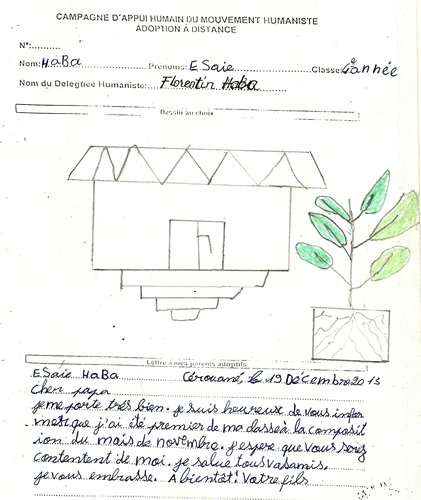 CAMPAGNE D'APPUI HUMAIN DU MOUVEMENT HUMANISTE
ADOPTION À DISTANCE
N°:..........
Nom: HaBa Prénoms: ESaïe Classe: 4e année
Nom du Délégtice Humaniste: Florentin Haba
Dessin au choix
Lettre à mes parents adoptifs
ESaïe HaBa Cérouané, le 19 Décembre 2013
cher papa
je me porte très bien. je suis heureux de vous infor
mer que j'ai été premier de ma classe à la composit
ion du mais de novembre. j'espere que vous serez
contentent de moi. je salue tous vas amis.
je vous embrasse. A bientôt. Votre fils